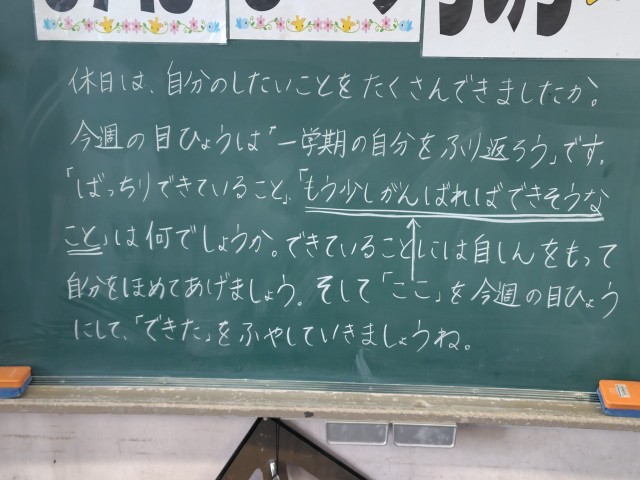 休日は、自分のしたいことをたくさんできましたか。
今週の目ひょうは「一学期の自分をふり返ろう」です。
「ばっちりできていること」、「もう少しがんばればできそうな
こと」は何でしょうか。できていることには自しんをもって
自分をほめてあげましょう。そして「ここ」を今週の目ひょう
にして、「できた」をふやしていきましょうね。